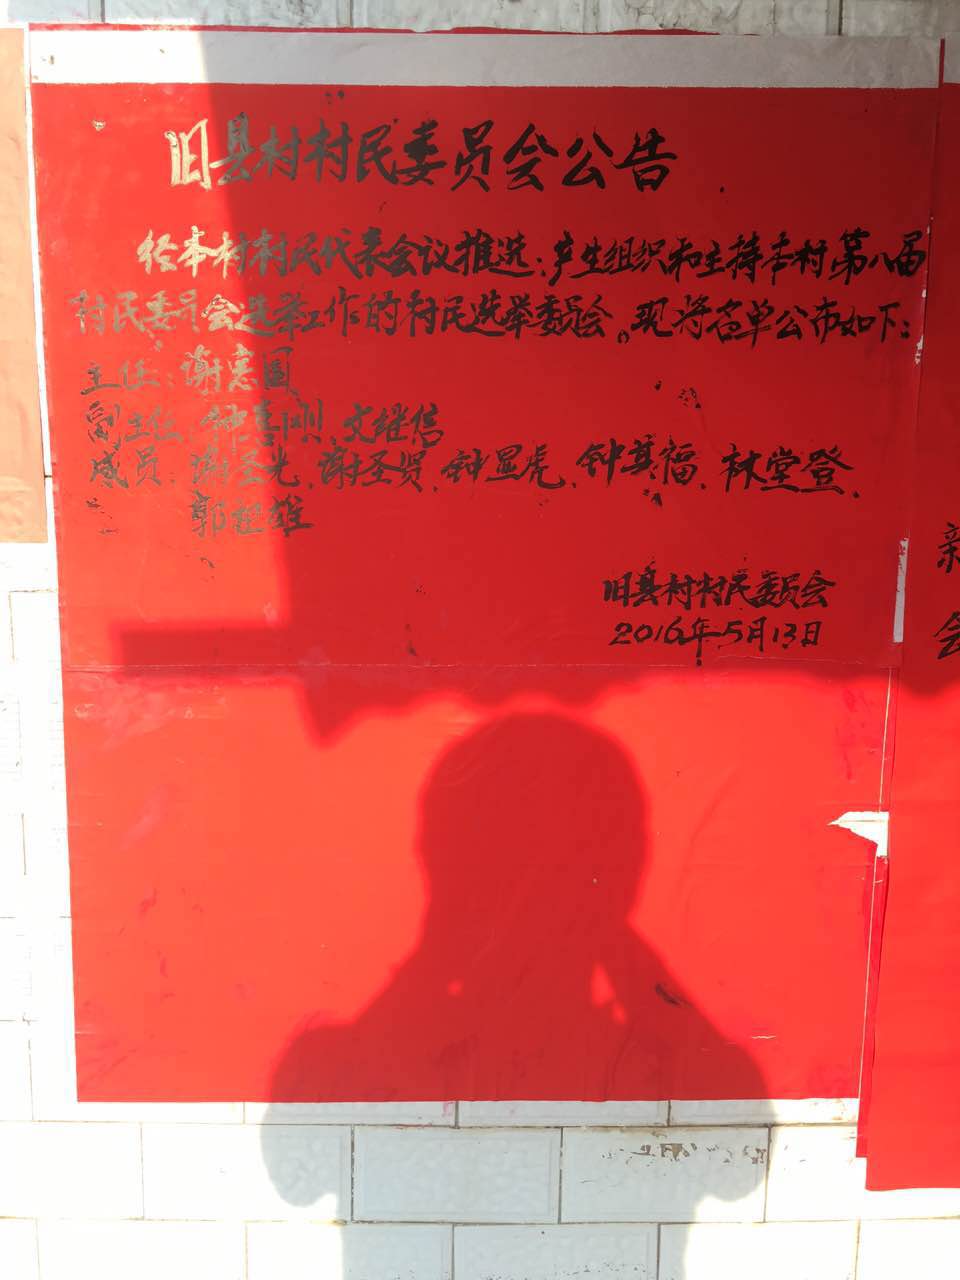 旧县村村民委员会公告
经本村村民代表会议推选，产生组织和主持本村第八届
村民委员会选举工作的村民选举委员会。现将名单公布如下：
主任：谢惠国
副主任 钟喜刚、文继信
成员：谢圣光、谢圣贤、钟显虎、钟其福、林堂登、
郭 雄
旧县村村民委员会
2016年5月13日
会